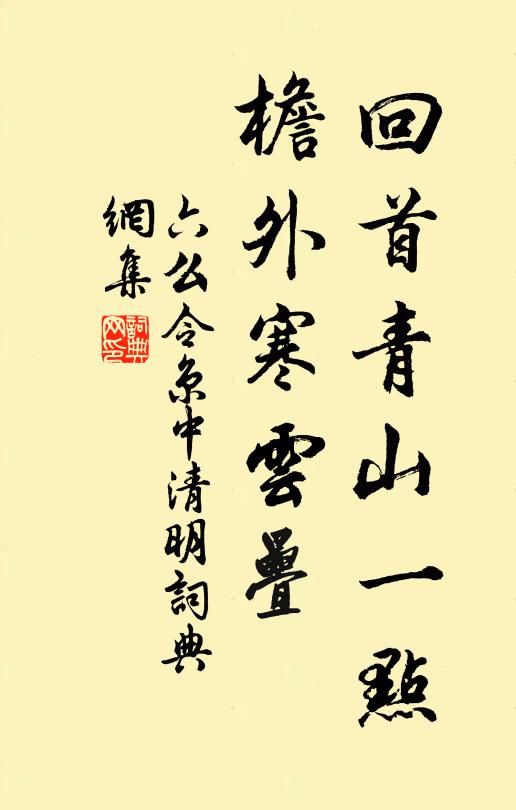 回首青山一點
檐外寒雲疊
六么令京中清明詞典
網集
詞典
网印